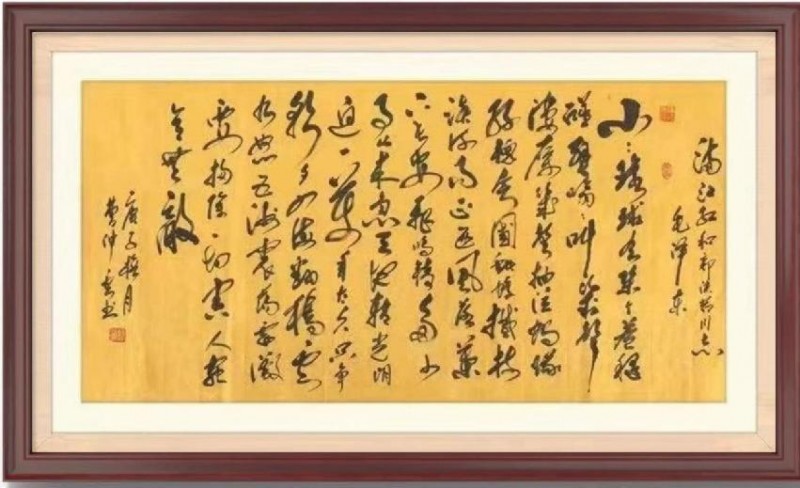 满江红和郭沫若同志
毛泽东
小〻环球有几个苍蝇
碰壁嗡〻叫几声
凄厉几声抽泣蚂蚁缘
槐夸大国蚍蜉撼树
谈何易正西风落叶
下长安飞鸣镝多少
事从来急天地转光阴
迫一万年太久只争
朝夕四海翻腾云
水怒五洲震荡风雷激
要扫除一切害人虫
全无敌
庚子月
曹书